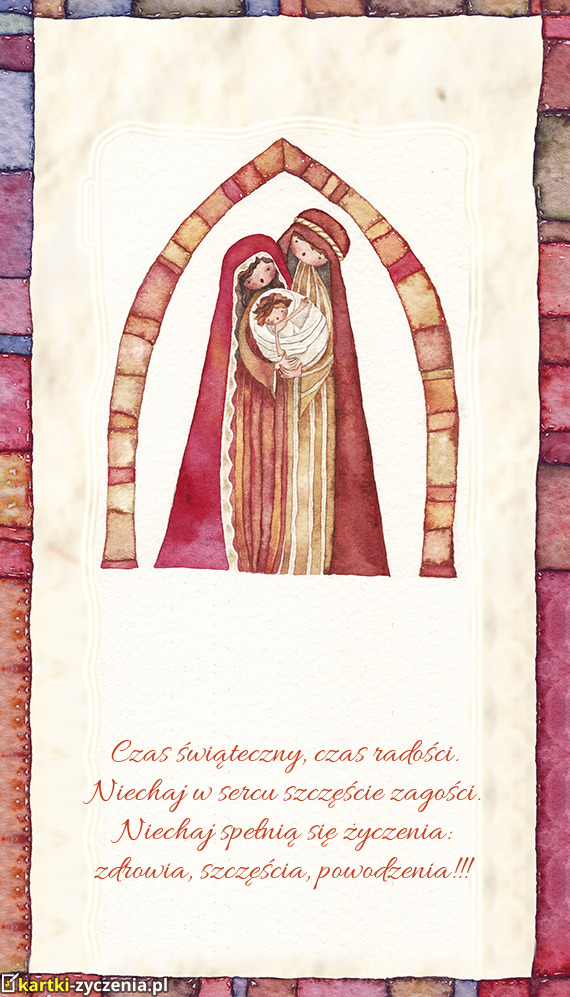 Czas świąteczny, czas radości.
Niechaj w sercu szczęście zagości.
Niechaj spełnią się życzenia:
zdrowia, szczęścia, powodzenia!!!
kartki-zyczenia.pl